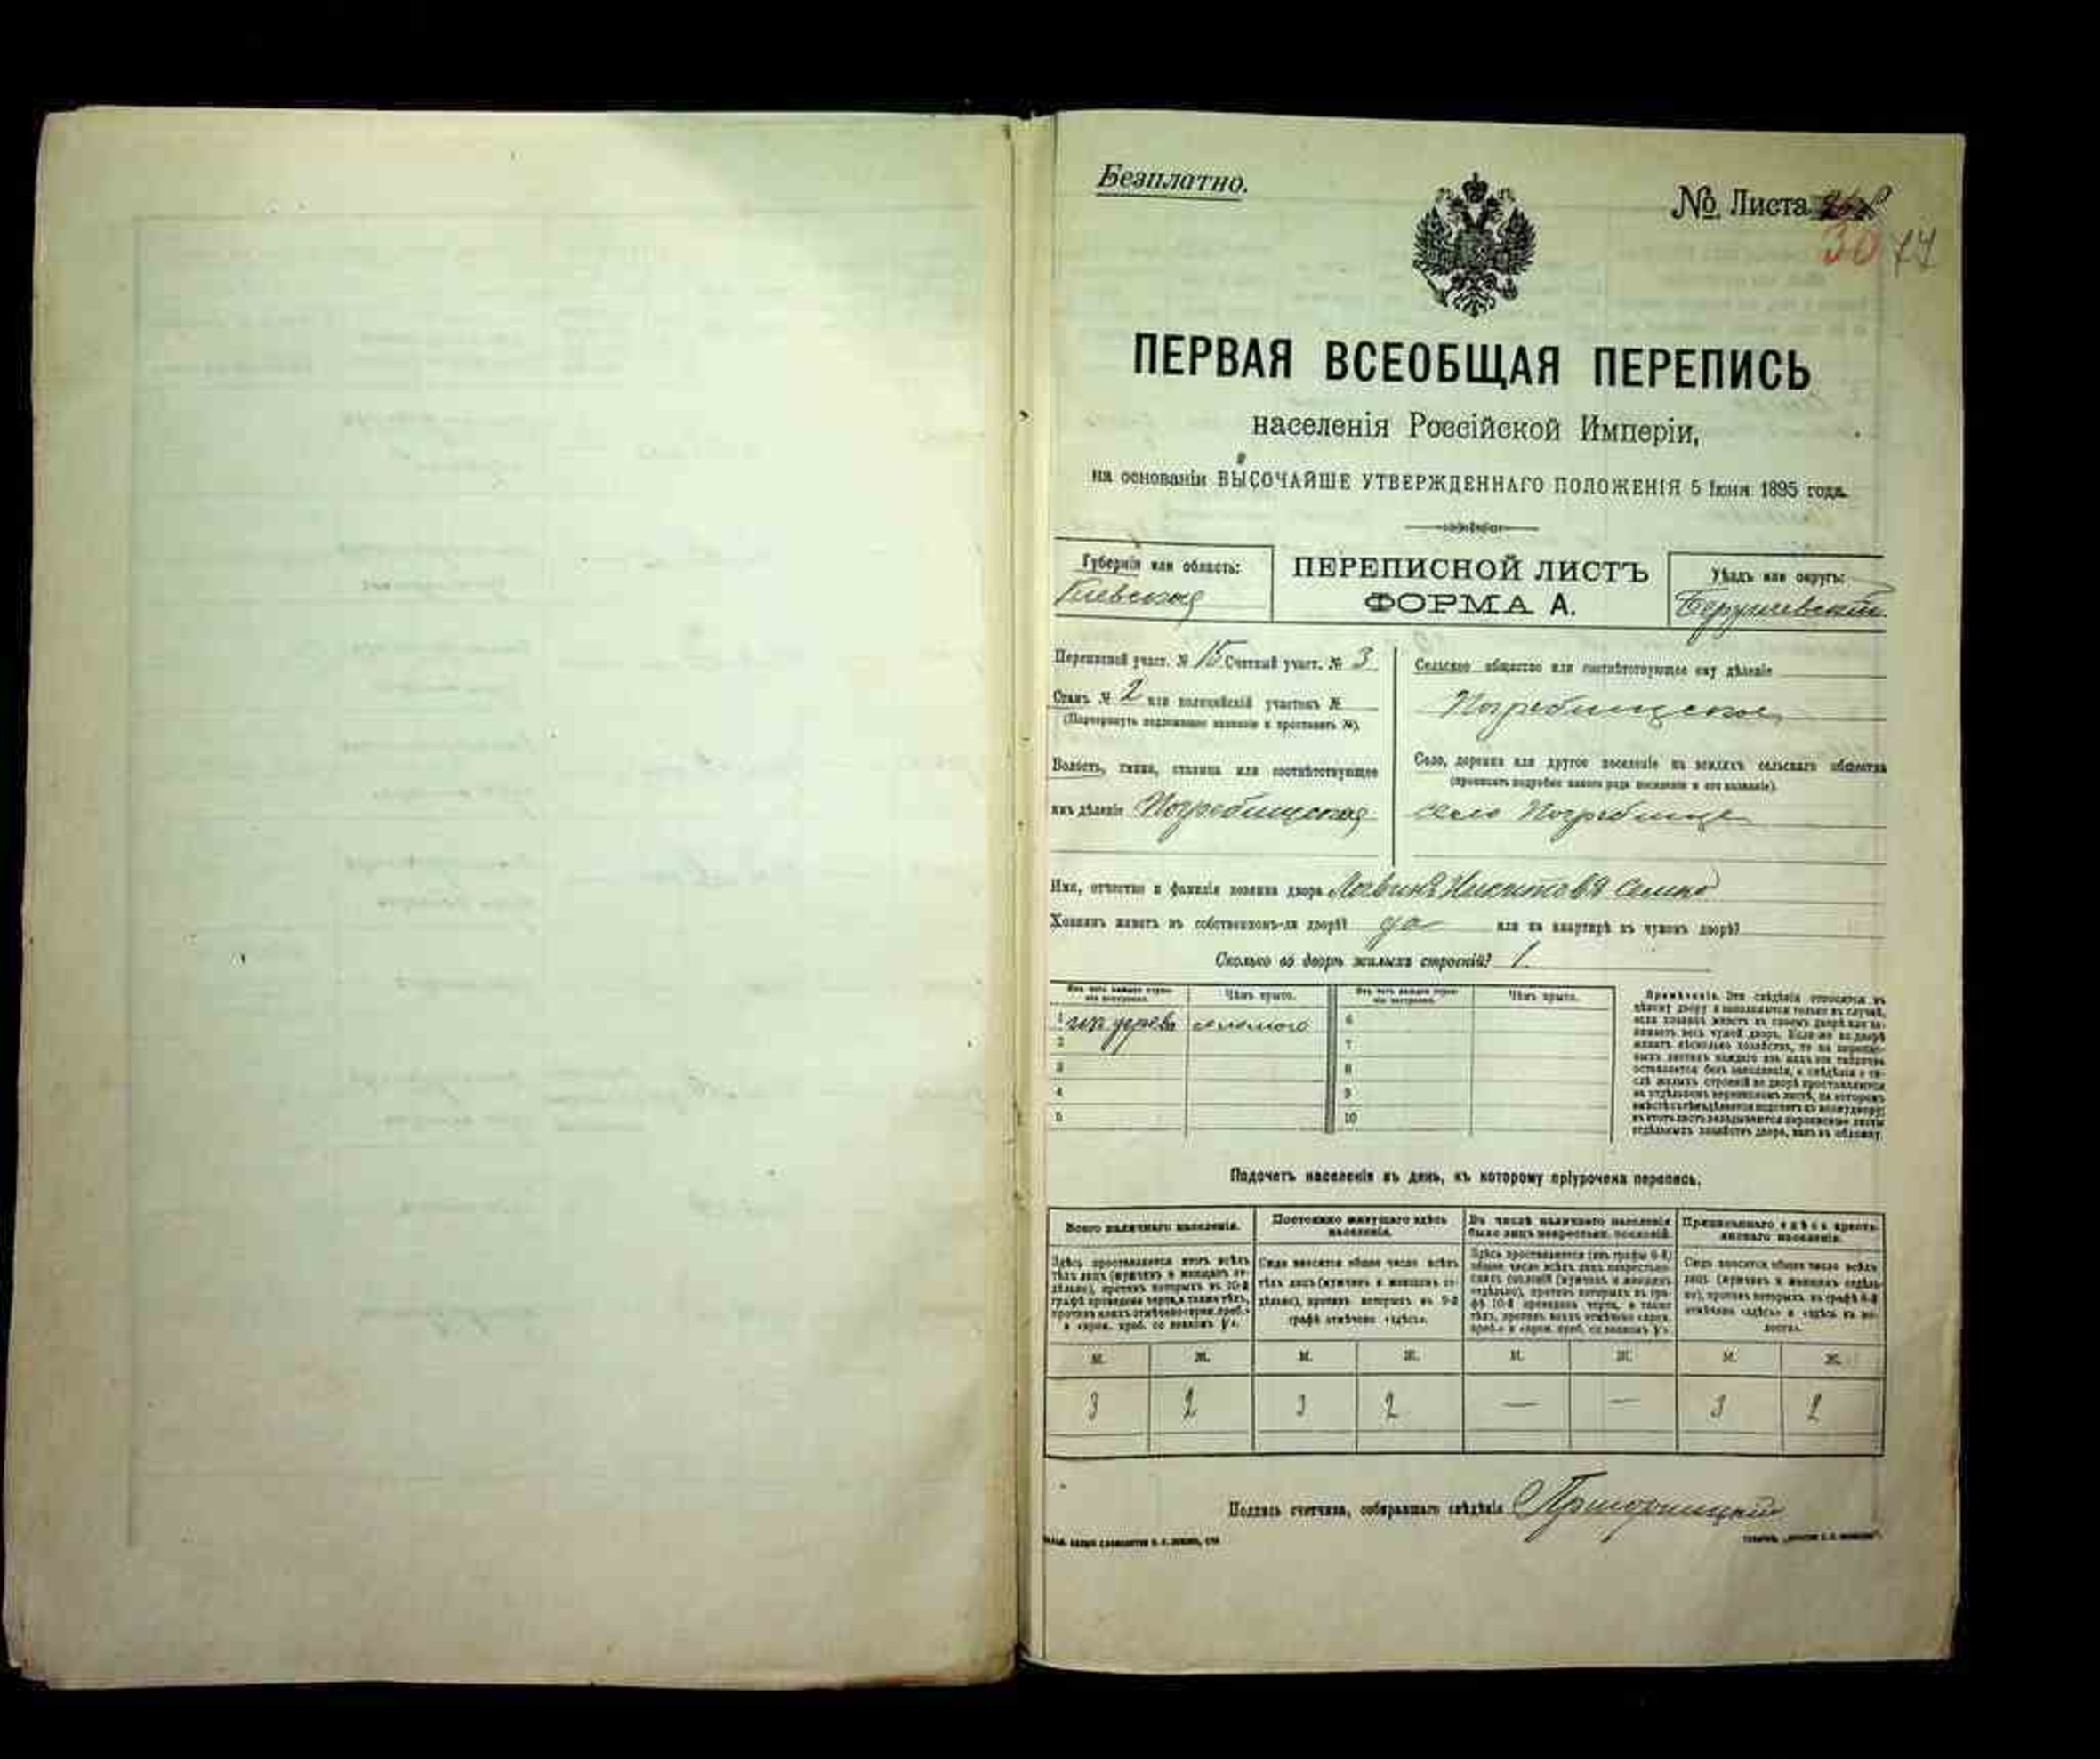 Безплатно.
№ Листа
30 44
ПЕРВАЯ ВСЕОБЩАЯ ПЕРЕПИСЬ
населенія Россійской Имперіи,
на основаніи ВЫСОЧАЙШЕ УТВЕРЖДЕННАГО ПОЛОЖЕНІЯ 5 Іюня 1895 года.
Губернія или область:
Кіевская
ПЕРЕПИСНОЙ ЛИСТЪ
ФОРМА А.
Уѣздъ или округъ:
Бердичевскій
Переписной участ. № 15 Счетный участ. № 3
Станъ № 2 или полицейскій участокъ №
(Подчеркнуть подлежащее названіе и проставить №).
Волость, гмина, станица или соотвѣтствующее
имъ дѣленіе Погребищская
Сельское общество или соотвѣтствующее ему дѣленіе
Погребищское
Село, деревня или другое поселеніе на земляхъ сельскаго общества
(прописать подробно какого рода поселеніе и его названіе).
село Погребище
Имя, отчество и фамилія хозяина двора Логвинъ Никитовъ
Хозяинъ живетъ въ собственномъ-ли дворѣ? да или на квартирѣ въ чужомъ дворѣ?
Сколько во дворѣ жилыхъ строеній? 1.
Изъ чего каждое строеніе построено. Чѣмъ крыто. Изъ чего каждое строеніе построено. Чѣмъ крыто.
1 изъ дерева соломою 6
2 7
3 8
4 9
5 10
Примѣчаніе. Эти свѣдѣнія относятся къ
цѣлому двору и заполняются только въ случаѣ,
если хозяинъ живетъ въ своемъ дворѣ или за-
нимаетъ весь чужой дворъ. Если-же во дворѣ
живетъ нѣсколько хозяйствъ, то на перепис-
ныхъ листахъ каждаго изъ нихъ эта табличка
оставляется безъ заполненія, а свѣдѣнія о чи-
слѣ жилыхъ строеній во дворѣ проставляются
на отдѣльномъ переписномъ листѣ, на которомъ
вмѣстѣ съ тѣмъ дѣлается подсчетъ по всему двору;
въ этотъ листъ вкладываются переписные листы
отдѣльныхъ хозяйствъ двора, какъ въ обложку.
Подсчетъ населенія въ день, къ которому пріурочена перепись.
Всего наличнаго населенія.
Здѣсь проставляется итогъ всѣхъ
тѣхъ лицъ (мужчинъ и женщинъ от-
дѣльно), противъ которыхъ въ 10-й
графѣ проведена черта, а также тѣхъ,
противъ коихъ отмѣчено «врем. преб.»
и «врем. преб. со знакомъ V».
Постоянно живущаго здѣсь
населенія.
Сюда вносится общее число всѣхъ
тѣхъ лицъ (мужчинъ и женщинъ от-
дѣльно), противъ которыхъ въ 9-й
графѣ отмѣчено «здѣсь».
Въ числѣ наличнаго населенія
было лицъ некрестьян. сословій.
Здѣсь проставляется (изъ графы 6-й)
общее число всѣхъ лицъ некрестьян-
скихъ сословій (мужчинъ и женщинъ
отдѣльно), противъ которыхъ въ гра-
фѣ 10-й проведена черта, а также
тѣхъ, противъ коихъ отмѣчено «врем.
преб.» и «врем. преб. со знакомъ V».
Приписаннаго здѣсь кресть-
янскаго населенія.
Сюда вносится общее число всѣхъ
лицъ (мужчинъ и женщинъ отдѣль-
но), противъ которыхъ въ графѣ 8-й
отмѣчено «здѣсь» и «здѣсь въ во-
лости».
М. Ж. М. Ж. М. Ж. М. Ж.
3 2 3 2 — — 3 2
Подпись счетчика, собиравшаго свѣдѣнія